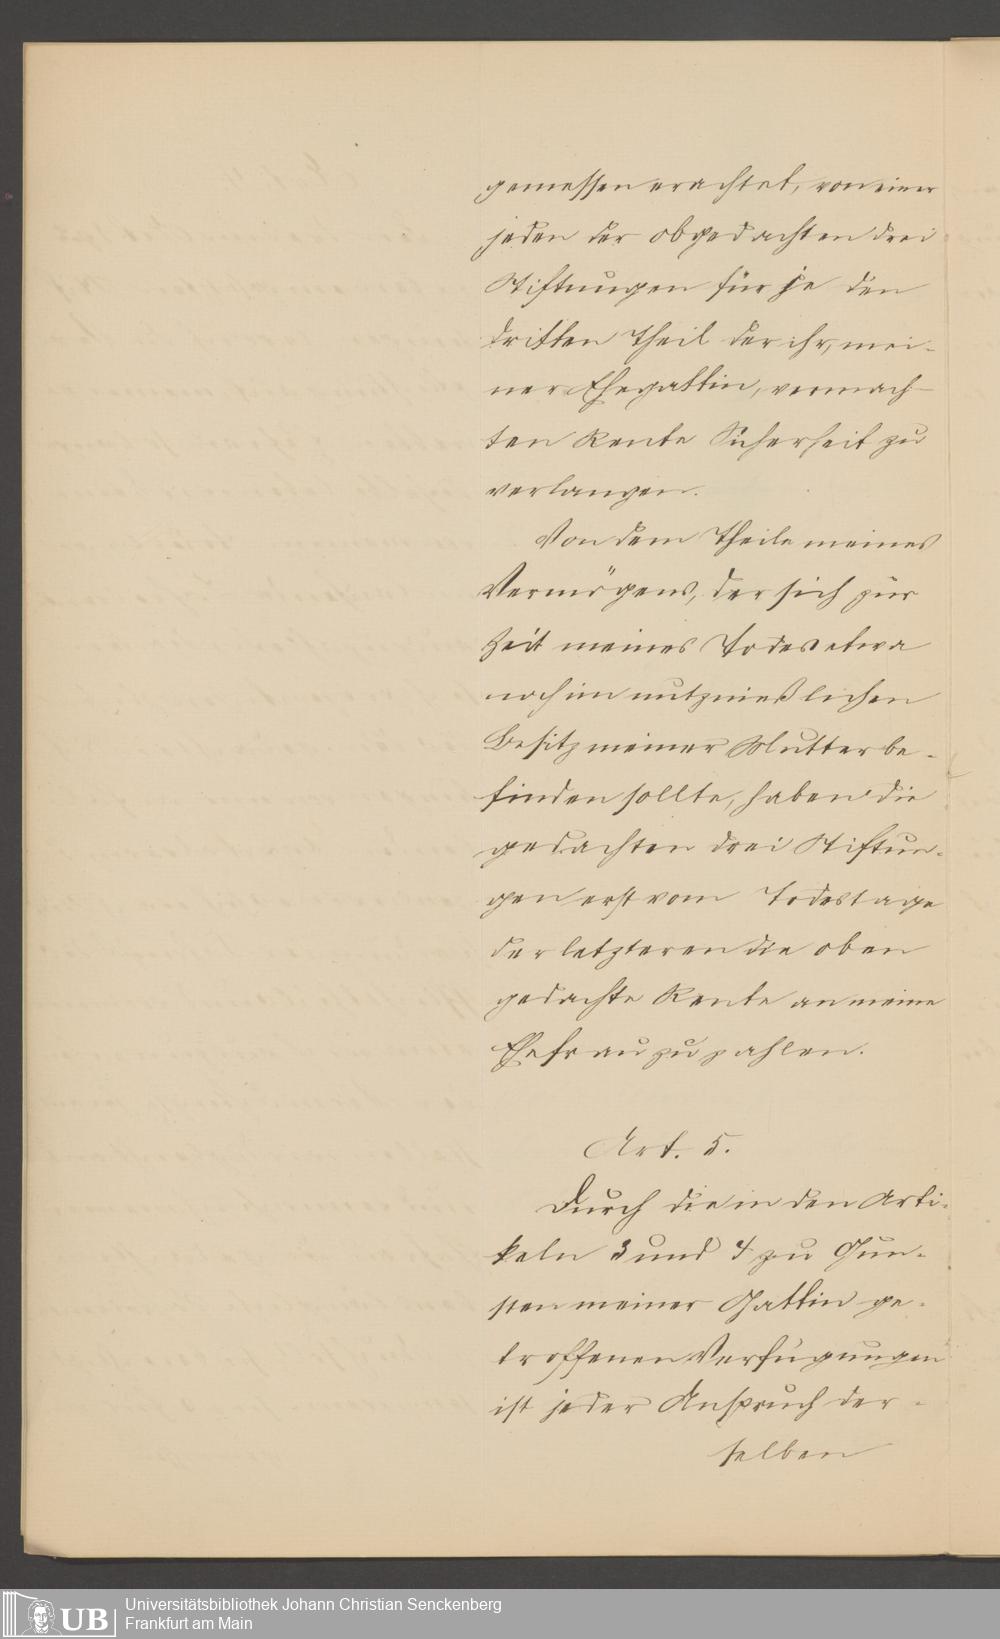 gemessen erachtet, von einer
jeden der obgedachten drei
Stiftungen für je den
dritten Theil der ihr, mei-
ner Ehegattin, vermach-
ten Rente Sicherheit zu
verlangen.
Von dem Theile meines
Vermögens, der sich zur
Zeit meines Todes etwa
noch im nutznießlichen
Besitz meiner Mutter be-
finden sollte, haben die
gedachten drei Stiftun-
gen erst vom Todestage
der letzteren die oben
gedachte Rente an meine
Ehefrau zu zahlen.
Art. 5.
Durch die in den Arti-
keln 3 und 4 zu Gun-
sten meiner Gattin ge-
troffenen Verfügungen
ist jeder Anspruch der-
selben
UB
Universitätsbibliothek Johann Christian Senckenberg
Frankfurt am Main